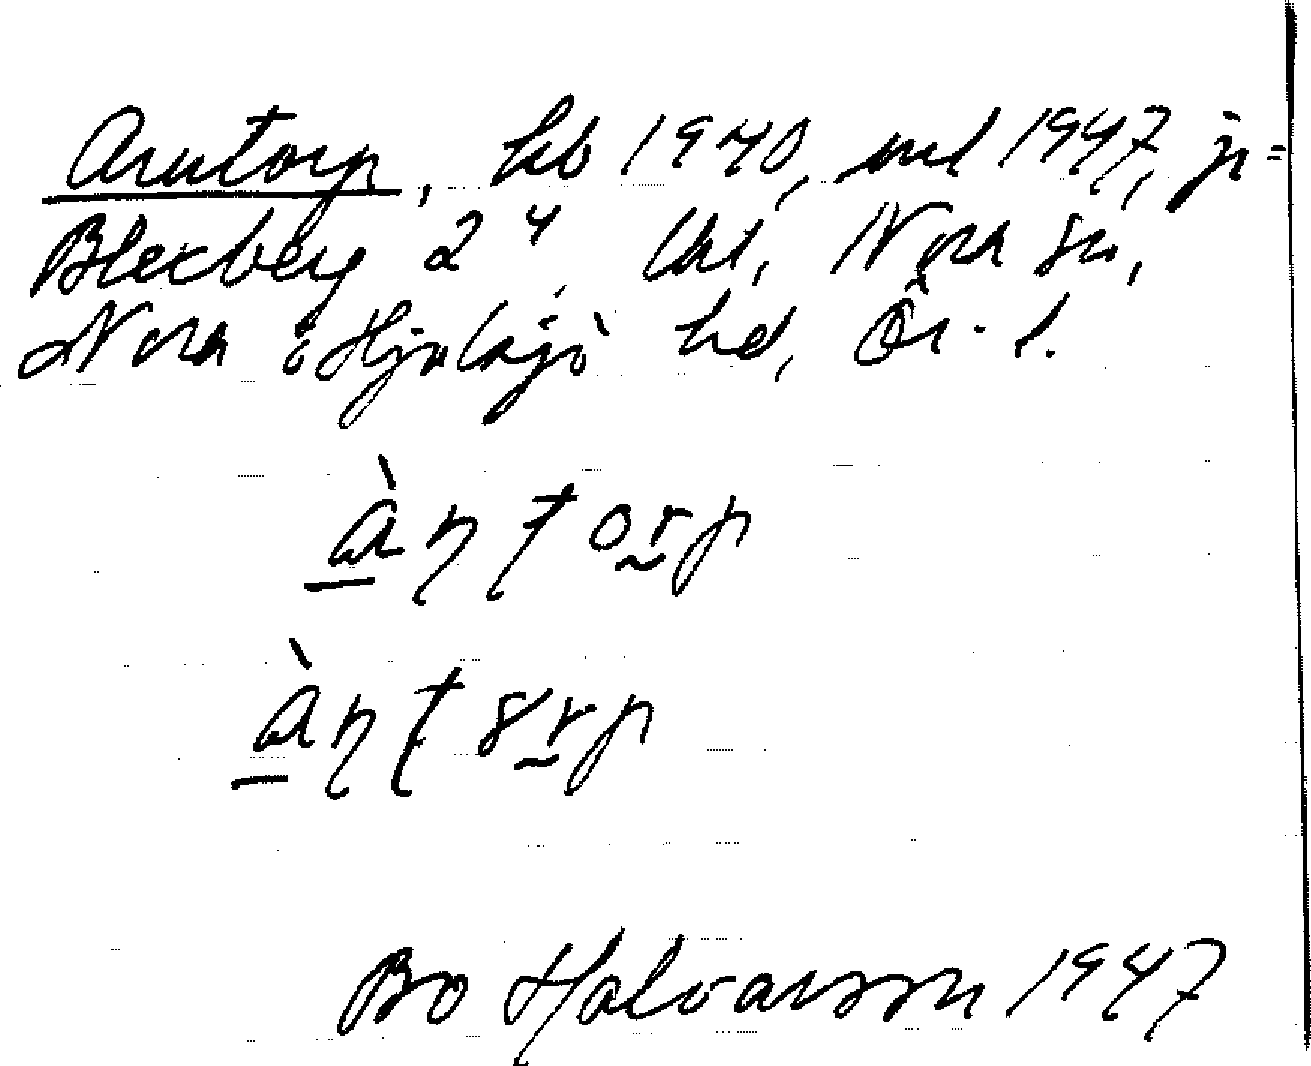 Arntorp, lhb 1940, uml 1947, jr=
Blexberg 2⁴, lht, Nora sn,
Nora o Hjulsjö hd, Ör. l.
àn̩torp
àn̩t8rp
Bo Halvarsson 1947